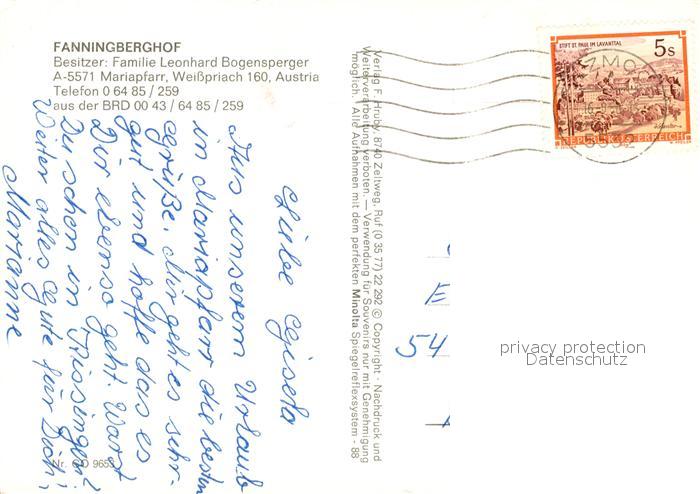 FANNINGBERGHOF
Besitzer: Familie Leonhard Bogensperger
A-5571 Mariapfarr, Weißpriach 160, Austria
Telefon 0 64 85 / 259
aus der BRD 00 43 / 64 85 / 259
Liebe Gisela
Aus unserem Urlaub
in Mariapfarr die besten
Grüße. Mir geht es sehr
gut und hoffe das es
Dir ebenso geht. Warst
Du schon in Kissingen?
Weiter alles Gute für Dich!
Marianne
Nr. GD 9653
Verlag F. Hruby, 8740 Zeltweg, Ruf (0 35 77) 22 292 © Copyright · Nachdruck und
Weiterverarbeitung verboten. — Verwendung für Souvenirs nur mit Genehmigung
möglich. · Alle Aufnahmen mit dem perfekten Minolta Spiegelreflexsystem - 88
STIFT ST. PAUL IM LAVANTTAL
5s
REPUBLIK ÖSTERREICH
E
54
privacy protection
Datenschutz